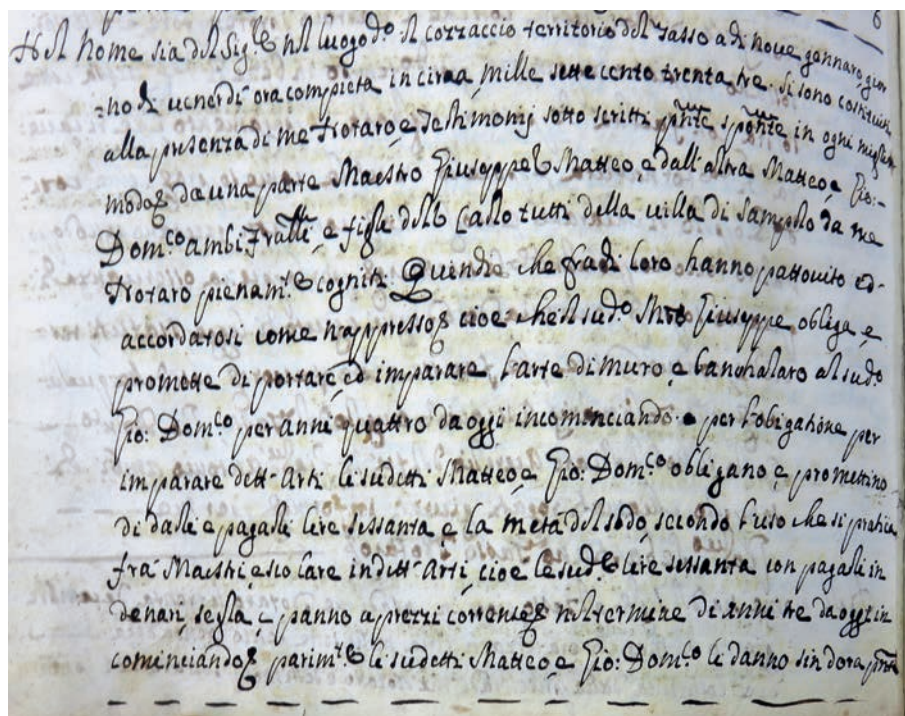 Nel Nome sia del Sig.re nel luogo do. il cozzaccio territorio del Tasso a di nove gennaro gior
=no di venerdi ora compieta in circa mille sette cento trenta tre. Si sono costituiti
alla presenza di me Notaro, e Testimonij sotto scritti pnte sponte in ogni miglior
modo da una parte Maestro Giuseppe Matteo, e dall'altra Matteo, e Gio:-
Dom.co ambi Fratelli, e figli del Carlo tutti della villa di Sampolo da me
Notaro pienam.te cogniti: Quendi che fra di loro hanno pattovito ed-
accordarosi come n'appresso cioe che il sud.o Mro Giuseppe obliga, e
promette di portare, ed imparare l'arte di muro, e banchalaro al sudo
Gio: Dom.co per anni quattro da oggi incominciando. e per l'obligatione per
imparare dett' Arti li sudetti Matteo, e Gio: Dom.co obligano, e promettino
di darli e pagarli lire sessanta, e la metà del sodo, secondo l'uso che si pratica
frà Maestri, e scolare in dett' Arti, cioe le sud.e lire sessanta con pagarli in
denari, segla, e panno a prezzi correnti nel termine di anni tre da oggi in
cominciando parim.te li sudetti Matteo, e Gio: Dom.co li danno sin dora pnte